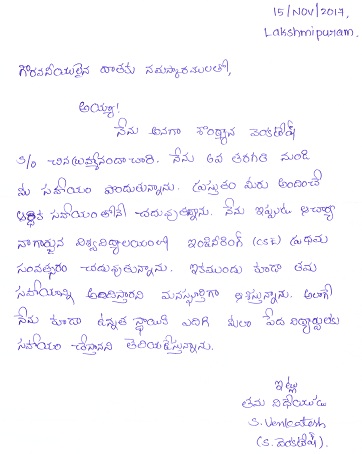 15/NOV/2017,
Lakshmipuram.
గౌరవనీయులైన దాతకు నమస్కారములతో,
అయ్యా!
నేను అనగా శొంఠ్యాన వెంకటేష్
S/o చిన బ్రహ్మానందా చారి. నేను 6వ తరగతి నుండి
మీ సహాయం పొందుతున్నాను. ప్రస్తుతం మీరు అందించే
ఆర్థిక సహాయంతోనే చదువుతున్నాను. నేను ఇప్పుడు ఆచార్యా
నాగార్జున విశ్వవిద్యాలయంలో ఇంజినీరింగ్ (CSE) ప్రథమ
సంవత్సరం చదువుతున్నాను. ఇకముందు కూడా తమ
సహాయాన్ని అందిస్తారని మనస్ఫూర్తిగా ఆశిస్తున్నాను. అలాగే
నేను కూడా ఉన్నత స్థాయికి ఎదిగి పేద విద్యార్థులకు
సహాయం చేస్తానని తెలియజేస్తున్నాను.
ఇట్లు
తమ విధేయుడు
S. Venkatesh
(S. వెంకటేష్).